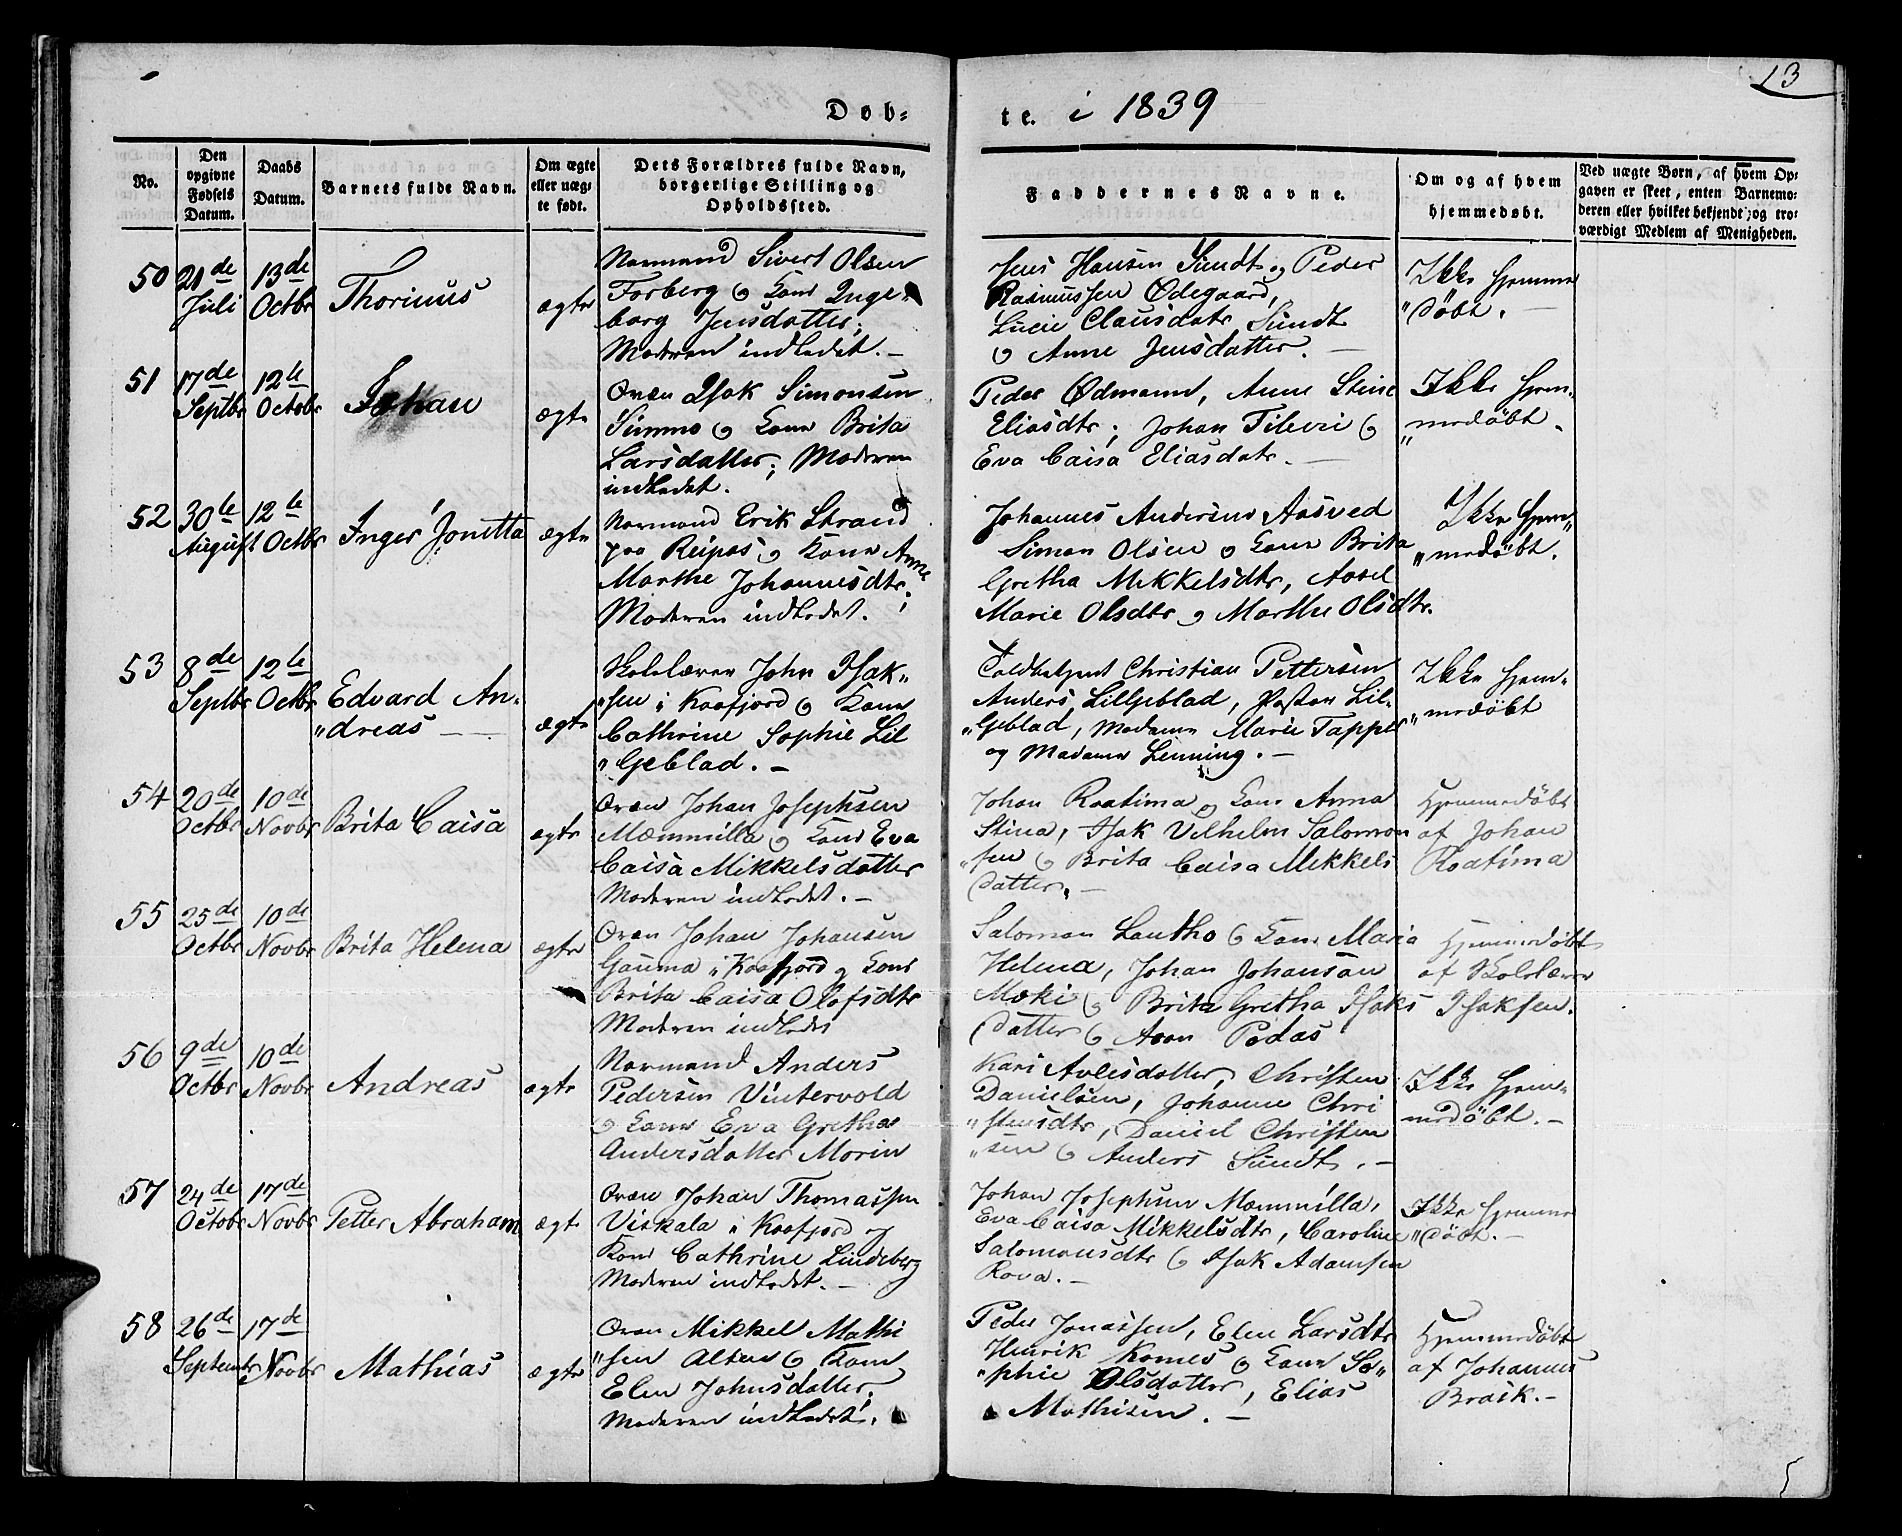 13
Døb-
te. i 1839
No.
Den
opgivne
Fødsels
Datum.
Daabs
Datum.
Barnets fulde Navn.
Om ægte
eller uæg-
te født.
Dets Forældres fulde Navn,
borgerlige Stilling og
Opholdssted.
Faddernes Navne.
Om og af hvem
hjemmedøbt.
Ved uægte Børn, af hvem Op-
gaven er skeet, enten Barnemo-
deren eller hvilket bekjendt og tro-
værdigt Medlem af Menigheden.
50
21de
Juli
13de
Octbr
Thorinus
ægte
Normand Sivert Olsen
Forberg og Kone Inge-
borg Jensdatter;
Moderen indledet. –
Jens Hansen Sundt og Peder
Rasmussen Ødegaard,
Lucie Clausdatr Sundt
og Anne Jensdatter. –
Ikke hjemme
"døbt. –
51
17de
Septbr
12te
Octobr
Johan
ægte
Qvæn Isak Simonsen
Simmo og Kone Brita
Larsdatter; Moderen
indledet.
Peder Ødmann, Anne Stine
Eliasdtr; Johan Fileri og
Eva Caisa Eliasdatr. –
Ikke hjem-
"medøbt.
52
30te
August
12te
Octbr
Inger Jonetta
ægte
Normand Erik Strand
paa Reipas og Kone Anne
Marthe Johannesdtr;
Moderen indledet.
Johannes Andersens Aasved
Simon Olsen og Kone Brita
Gretha Mikkelsdtr, Axel
Marie Olsdtr og Marthe Olsdtr.
Ikke hjem-
"medøbt.
53
8de
Septbr
12te
Octbr
Edvard An-
"dreas –
ægte
Skolelærer John Isak-
"sen i Kaafjord og Kone
Cathrine Sophie Lil
"Geblad. –
Toldbetjent Christian Pettersen
Anders Lillgeblad, Lil-
"Geblad, Madame Marie Tapper
og Madame Lenning. –
Ikke hjem-
"medøbt
54
20de
Octbr
10de
Novbr
Brita Caisa
ægte
Qvæn Johan Josephsen
Mæmmilla og Kone Eva
Caisa Mikkelsdatter
Moderen indledet. –
Johan Roatima og Kone Anna
Stina, Isak Vilhelm Salomon
"sen og Brita Caisa Mikkels
datter. –
Hjemmedøbt
af Johan
Roatima
55
25de
Octbr
10de
Novbr
Brita Helena
ægte
Qvæn Johan Johansen
Gauma i Kaafjord og Kone
Brita Caisa Olofsdtr
Moderen indledet
Salomon Lautho og Kone Maria
Helena, Johan Johanson
Mæki og Brita Gretha Isaks
datter og Aron Podas
Hjemmedøbt
af Skolelærer
Isaksen.
56
9de
Octbr
10de
Novbr
Andreas
ægte
Normand Anders
Pedersen Vintervold
og Kone Eva Grethe
Andersdatter Morin
Kari Avlesdatter, Christen
Danielsen, Johanne Chri
"stensdtr, Daniel Christen
"sen og Anders Sundt. –
Ikke hjem-
medøbt. –
57
24de
Octobr
17de
Novbr
Petter Abraham
ægt
Qvæn Johan Thomassen
Viskala i Kaafjord og
Kone Cathrine Lindeberg
Moderen indledet. –
Johan Josephsen Mæmmilla,
Eva Caisa Mikkelsdtr, Caroline
Salomonsdtr og Isak Adamsen
Rova. –
Ikke hjemme
"døbt. –
58
26de
Septembr
17de
Novbr
Mathias
ægte
Qvæn Mikkel Mathi
"sen Alten og Kone
Elen Johnsdatter;
Moderen indledet.
Peder Jonassen, Elen Larsdtr
Henrik Kornes og Kone So-
"phie Olsdatter, Elias
Mathisen. –
Hjemmedøbt
af Johannes
Brask. –